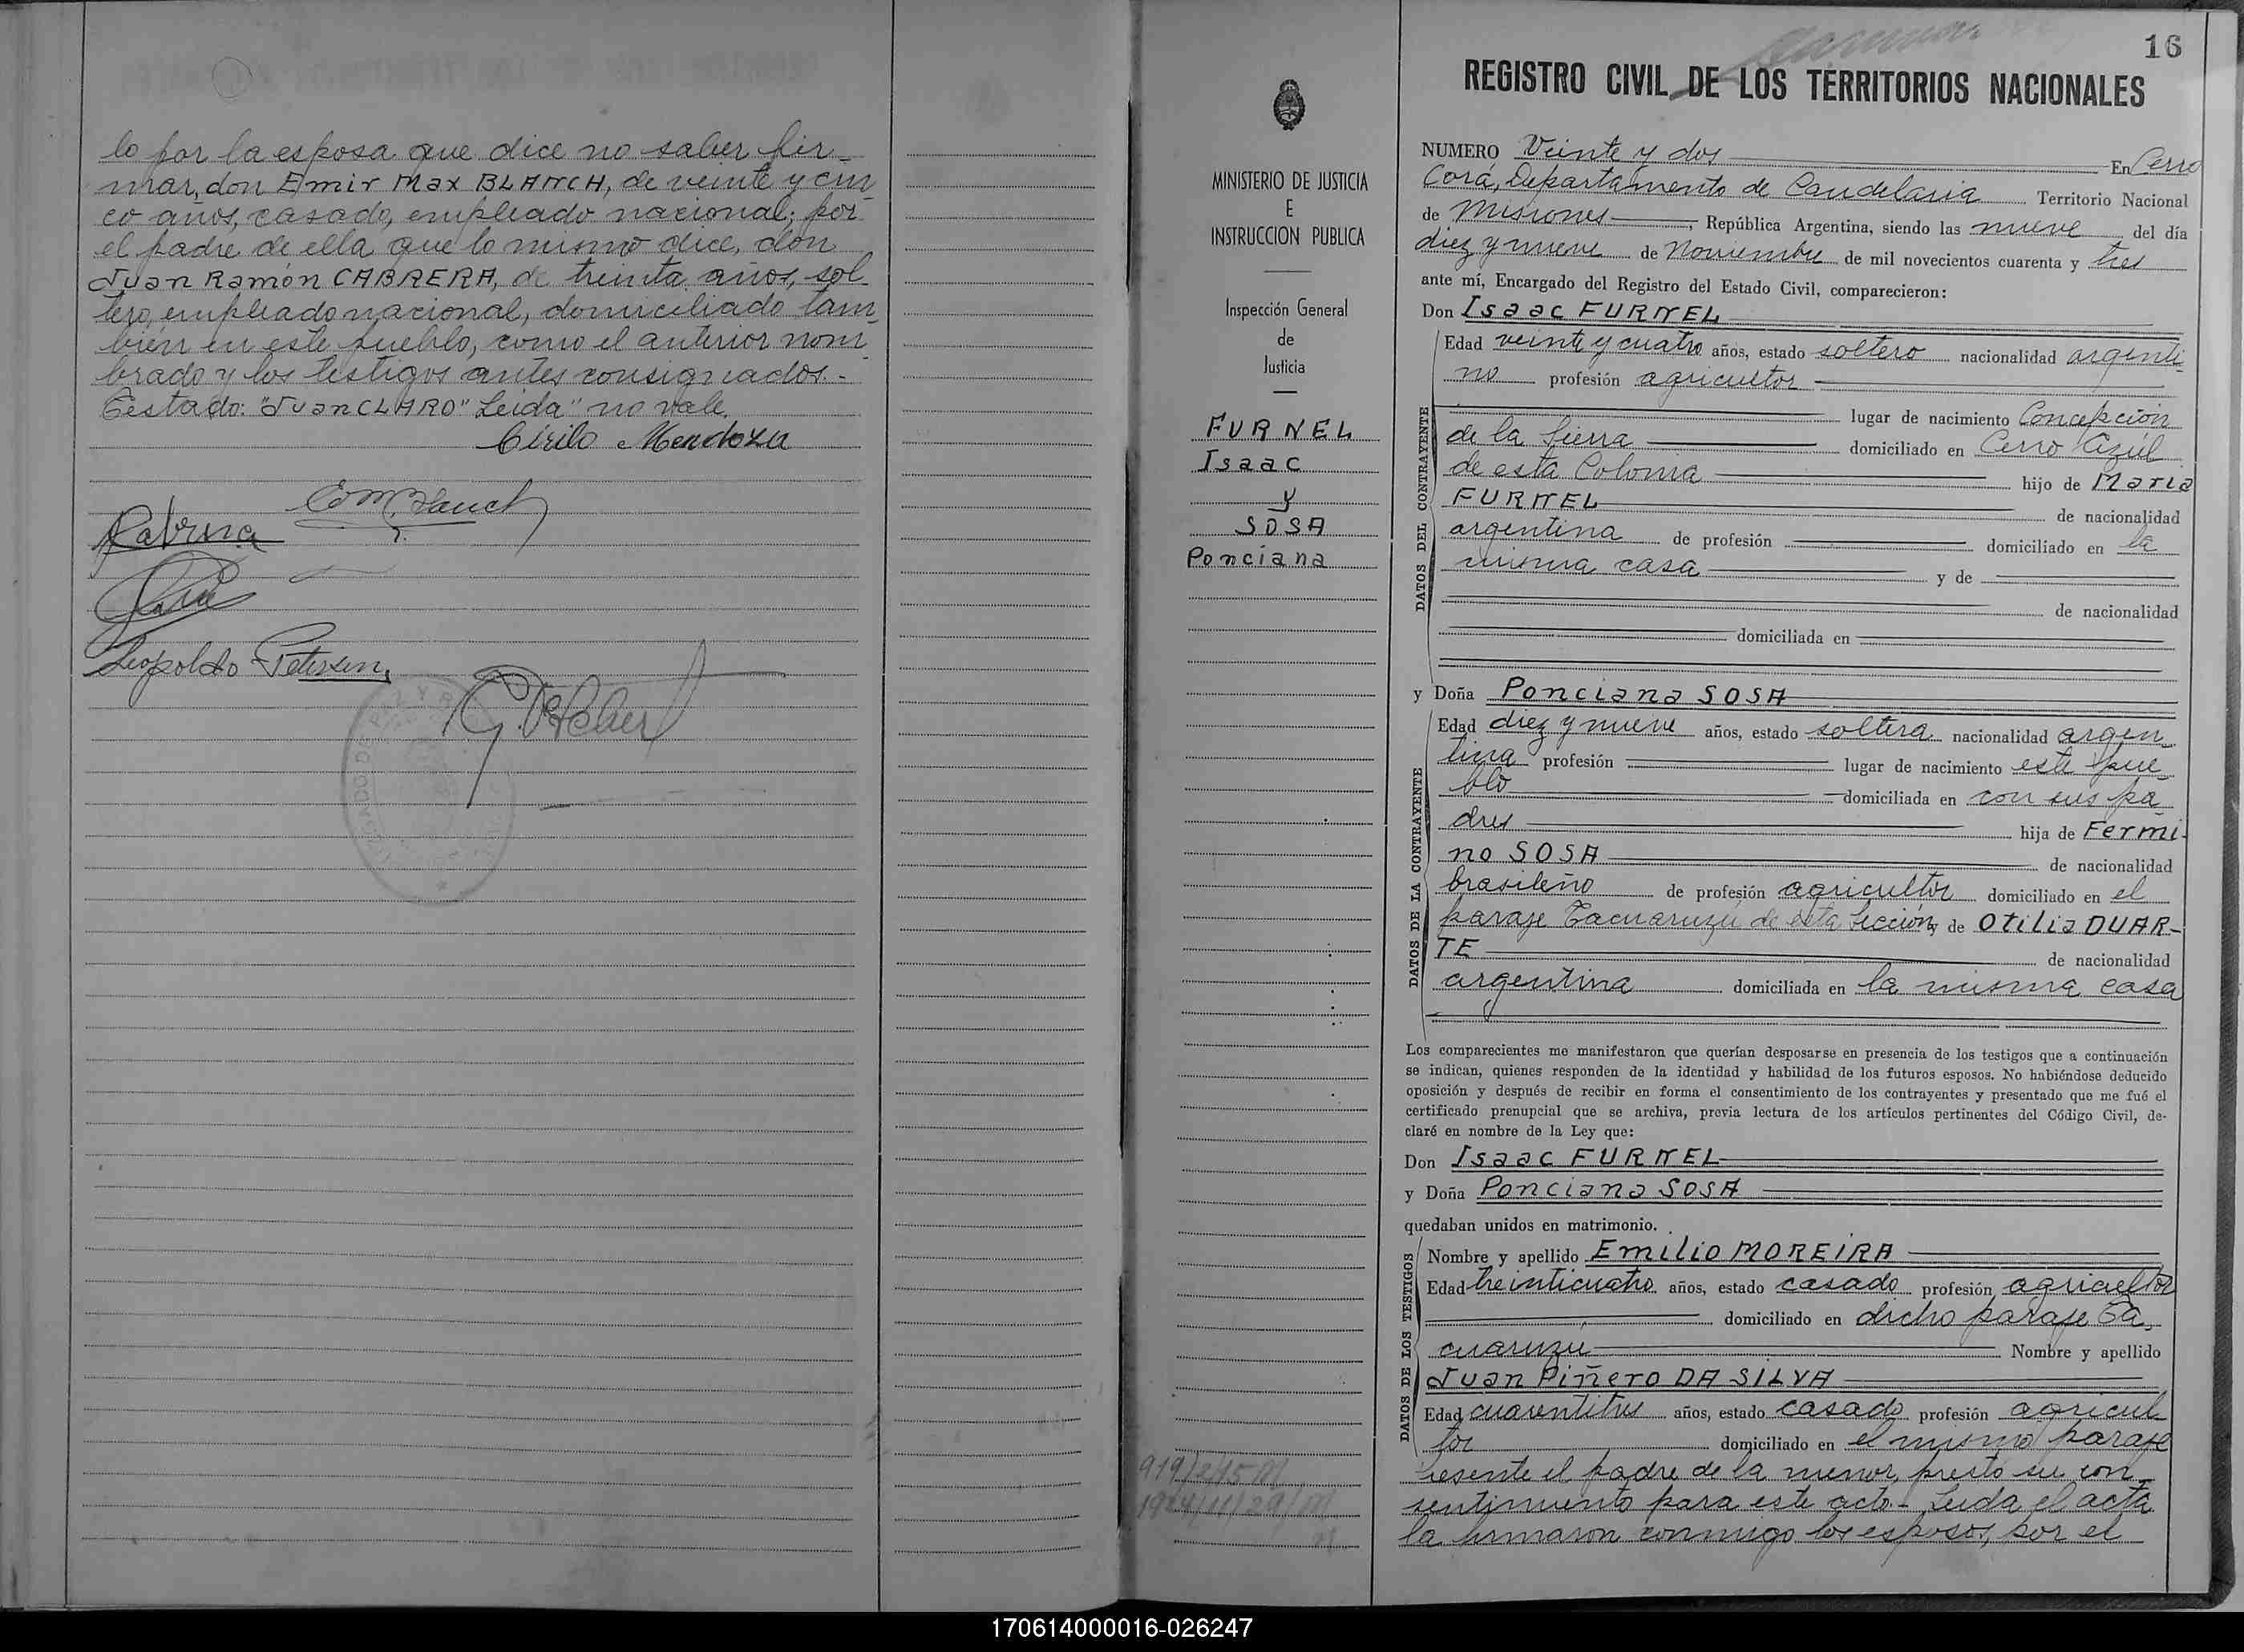 lo por la esposa que dice no saber fir-
mar, don Emir Max BLANCH, de veinte y cin
co años, casado, empleado nacional; por
el padre de ella que lo mismo dice, don
Juan Ramón CABRERA, de treinta años, sol
tero, empleado nacional, domiciliado tam
bién en este pueblo, como el anterior nom
brado y los testigos antes consignados.-
Testado: "Juan CLARO" Leida" no vale.
Cirilo Mendoza
Leopoldo Petersen
16
REGISTRO CIVIL DE LOS TERRITORIOS NACIONALES
MINISTERIO DE JUSTICIA
E
INSTRUCCION PUBLICA
Inspección General
de
Justicia
FURNEL
Isaac
y
SOSA
Ponciana
NUMERO Veinte y dos En Cerro
Corá, Departamento de Candelaria Territorio Nacional
de Misiones, República Argentina, siendo las nueve del día
diez y nueve de Noviembre de mil novecientos cuarenta y tres
ante mí, Encargado del Registro del Estado Civil, comparecieron:
Don Isaac FURNEL
DATOS DEL CONTRAYENTE
Edad veinte y cuatro años, estado soltero nacionalidad argenti
no profesión agricultor
lugar de nacimiento Concepción
de la Sierra domiciliado en Cerro Azúl
de esta Colonia hijo de Maria
FURNEL de nacionalidad
argentina de profesión domiciliado en la
misma casa y de
de nacionalidad
domiciliada en
y Doña Ponciana SOSA
DATOS DE LA CONTRAYENTE
Edad diez y nueve años, estado soltera nacionalidad argen
tina profesión lugar de nacimiento este pue
blo domiciliada en con sus pa
dres hija de Fermi-
no SOSA de nacionalidad
brasileño de profesión agricultor domiciliado en el
paraje Tacuaruzú de esta Sección y de Otilia DUAR-
TE de nacionalidad
argentina domiciliada en la misma casa
Los comparecientes me manifestaron que querían desposarse en presencia de los testigos que a continuación
se indican, quienes responden de la identidad y habilidad de los futuros esposos. No habiéndose deducido
oposición y después de recibir en forma el consentimiento de los contrayentes y presentado que me fué el
certificado prenupcial que se archiva, previa lectura de los artículos pertinentes del Código Civil, de-
claré en nombre de la Ley que:
Don Isaac FURNEL
y Doña Ponciana SOSA
quedaban unidos en matrimonio.
DATOS DE LOS TESTIGOS
Nombre y apellido Emilio MOREIRA
Edad treinticuatro años, estado casado profesión agricultor
domiciliado en dicho paraje Ta
cuaruzú Nombre y apellido
Juan Piñero DA SILVA
Edad cuarentitres años, estado casado profesión agricul
tor domiciliado en el mismo paraje
Presente el padre de la menor, prestó su con
sentimiento para este acto.- Leida el acta
la firmaron conmigo los esposos, por el
170614000016-026247